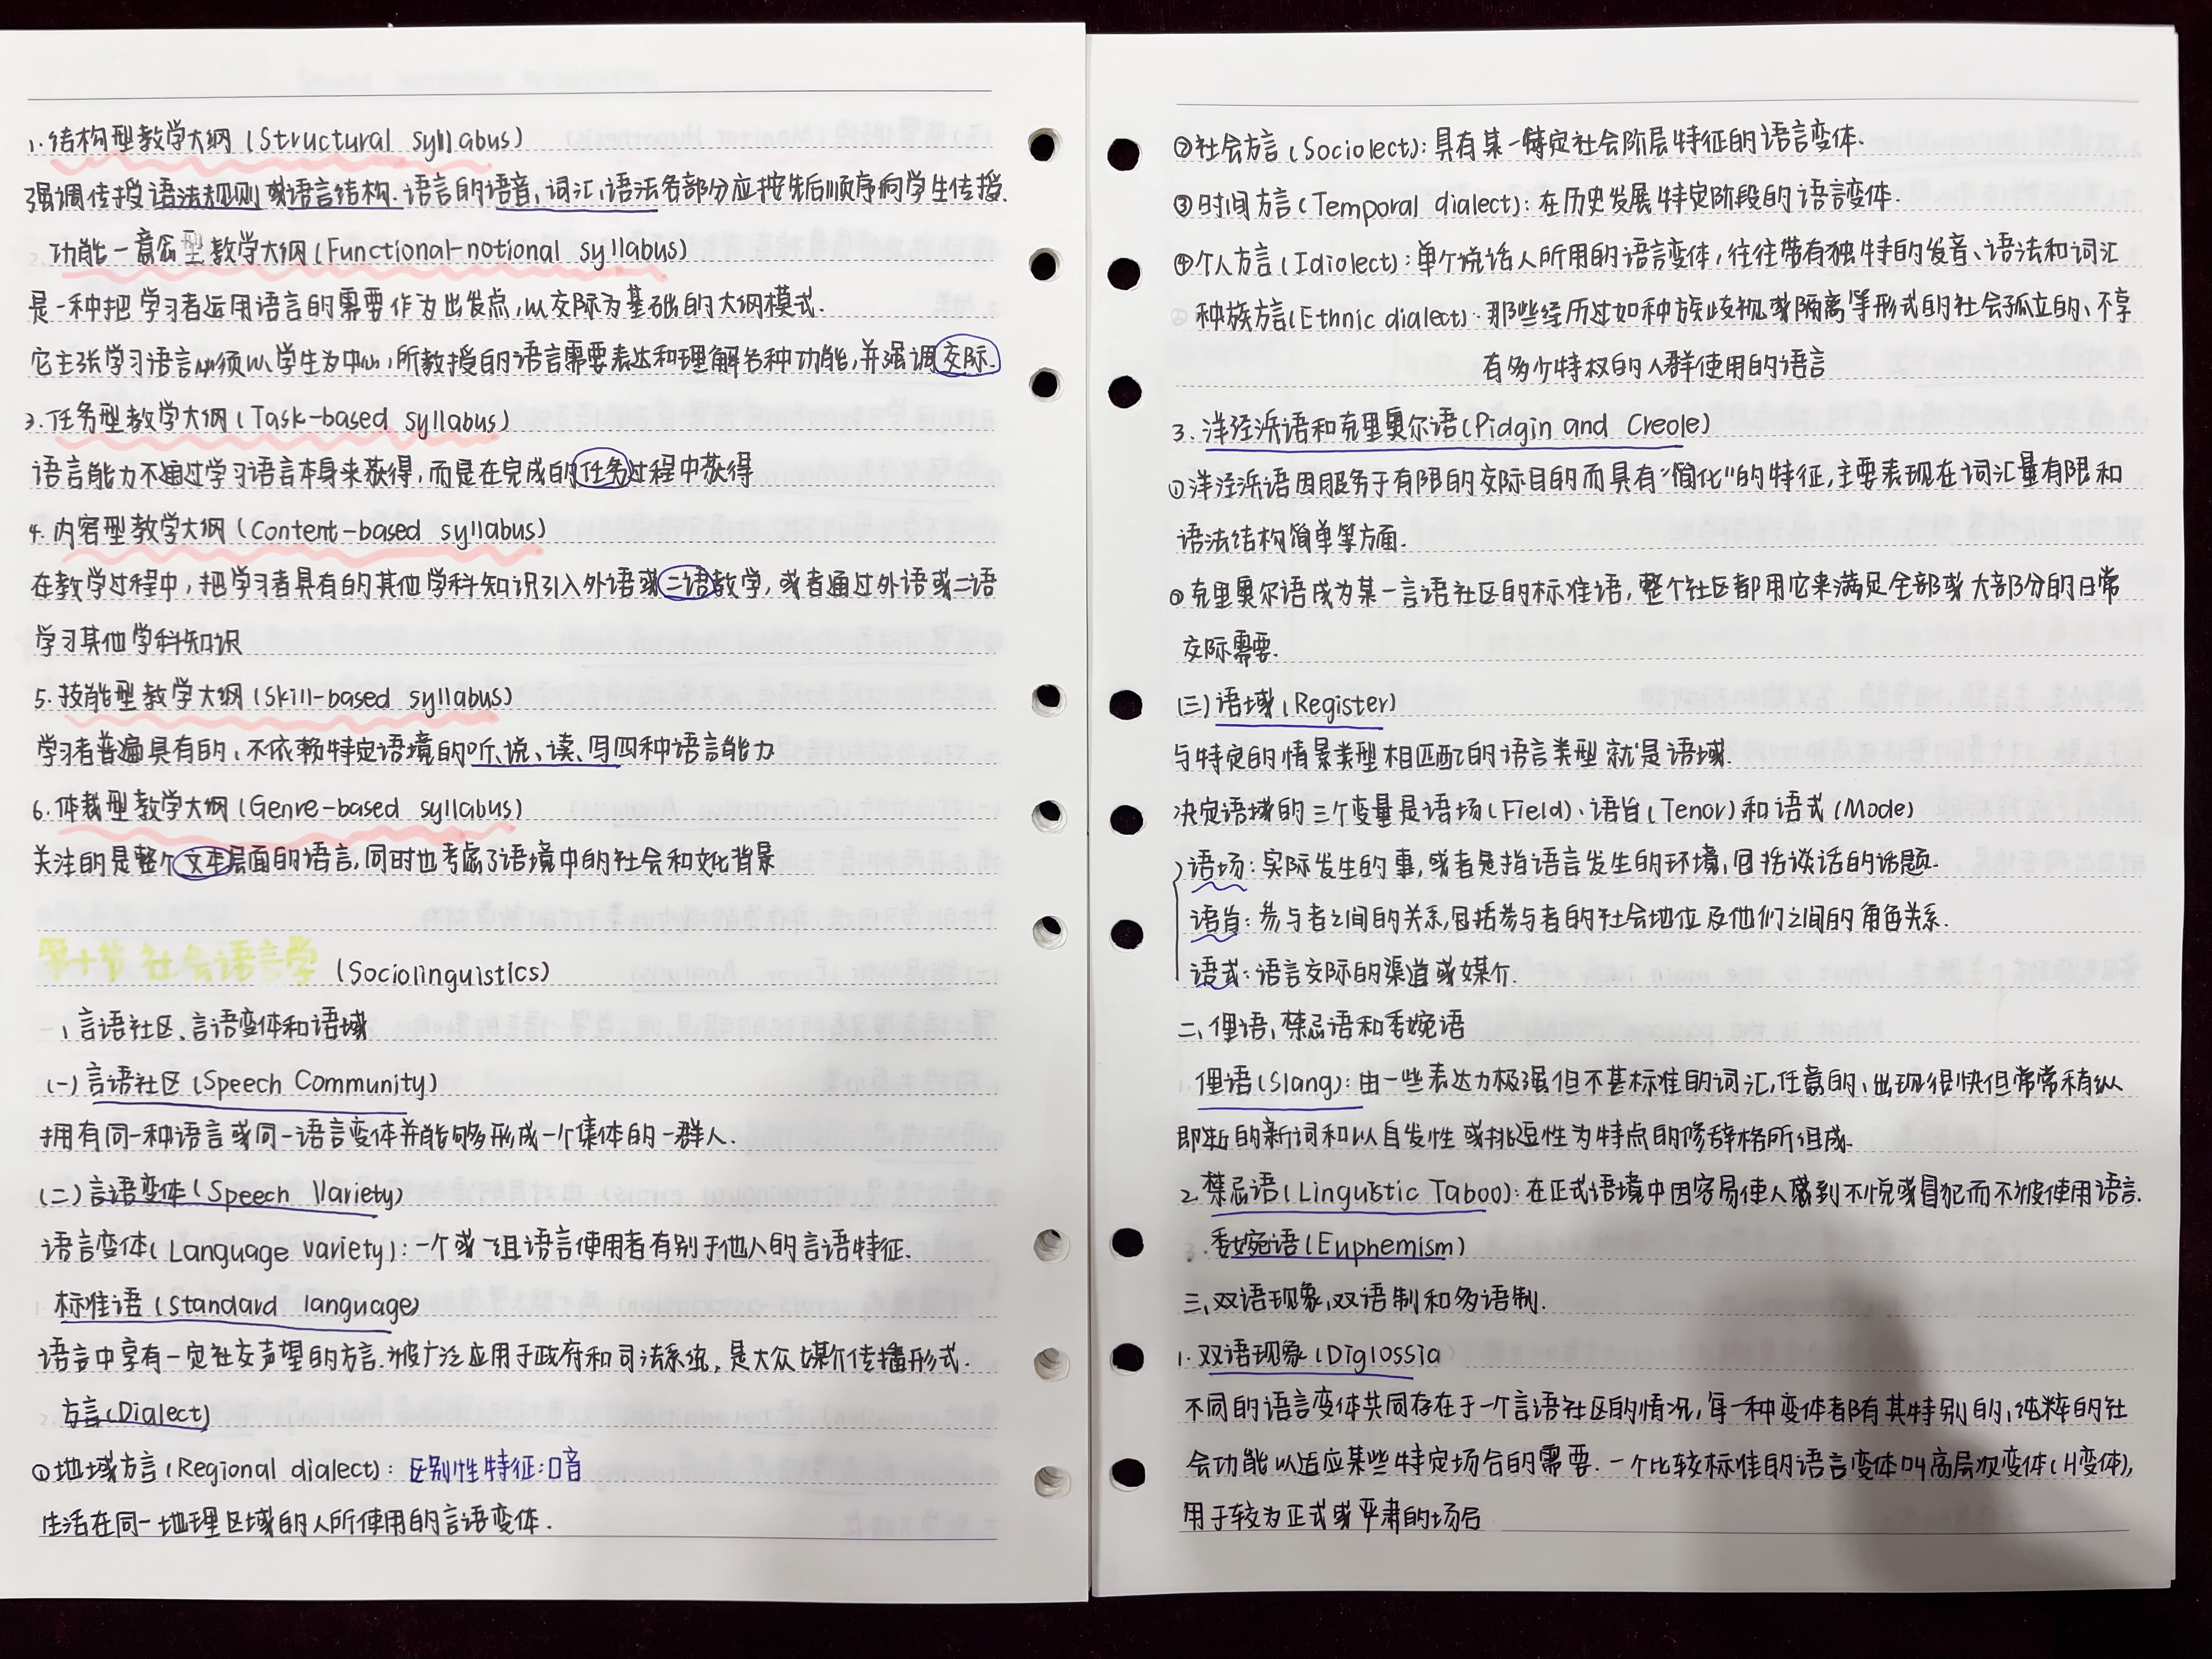 1. 结构型教学大纲 (Structural syllabus)
强调传授语法规则或语言结构. 语言的语音、词汇、语法各部分应按先后顺序向学生传授.
功能—意念型教学大纲 (Functional-notional syllabus)
是一种把学习者运用语言的需要作为出发点,以交际为基础的大纲模式.
它主张学习语言必须以学生为中心,所教授的语言需要表达和理解各种功能,并强调交际.
3. 任务型教学大纲 (Task-based syllabus)
语言能力不通过学习语言本身来获得,而是在完成的任务过程中获得
4. 内容型教学大纲 (Content-based syllabus)
在教学过程中,把学习者具有的其他学科知识引入外语或二语教学,或者通过外语或二语
学习其他学科知识
5. 技能型教学大纲 (Skill-based syllabus)
学习者普遍具有的、不依赖特定语境的听、说、读、写四种语言能力
6. 体裁型教学大纲 (Genre-based syllabus)
关注的是整个文本层面的语言,同时也考虑了语境中的社会和文化背景
第十节 社会语言学 (Sociolinguistics)
一、言语社区、言语变体和语域
(一) 言语社区 (Speech Community)
拥有同一种语言或同一语言变体并能够形成一个集体的一群人.
(二) 言语变体 (Speech Variety)
语言变体 (Language variety): 一个或一组语言使用者有别于他人的言语特征.
标准语 (Standard language)
语言中享有一定社交声望的方言.被广泛应用于政府和司法系统,是大众媒介传播形式.
方言 (Dialect)
①地域方言 (Regional dialect): 区别性特征:口音
生活在同一地理区域的人所使用的言语变体.
②社会方言 (Sociolect): 具有某一特定社会阶层特征的语言变体.
③时间方言 (Temporal dialect): 在历史发展特定阶段的语言变体.
④个人方言 (Idiolect): 单个说话人所用的语言变体,往往带有独特的发音、语法和词汇
种族方言 (Ethnic dialect): 那些经历过如种族歧视或隔离等形式的社会孤立的、不享
有多个特权的人群使用的语言
3. 洋泾浜语和克里奥尔语 (Pidgin and Creole)
①洋泾浜语因服务于有限的交际目的而具有“简化”的特征,主要表现在词汇量有限和
语法结构简单等方面.
②克里奥尔语成为某一言语社区的标准语,整个社区都用它来满足全部或大部分的日常
交际需要.
(三) 语域 (Register)
与特定的情景类型相匹配的语言类型就是语域.
决定语域的三个变量是语场 (Field)、语旨 (Tenor) 和语式 (Mode)
语场: 实际发生的事,或者是指语言发生的环境,包括谈话的话题.
语旨: 参与者之间的关系,包括参与者的社会地位及他们之间的角色关系.
语式: 语言交际的渠道或媒介.
二、俚语、禁忌语和委婉语
俚语 (Slang): 由一些表达力极强但不甚标准的词汇,任意的、出现很快但常常稍纵
即逝的新词和以自发性或挑逗性为特点的修辞格所组成.
2. 禁忌语 (Linguistic Taboo): 在正式语境中因容易使人感到不悦或冒犯而不被使用语言.
3. 委婉语 (Euphemism)
三、双语现象,双语制和多语制.
1. 双语现象 (Diglossia
不同的语言变体共同存在于一个言语社区的情况,每一种变体都有其特别的、纯粹的社
会功能以适应某些特定场合的需要. 一个比较标准的语言变体叫高层次变体 (H变体),
用于较为正式或严肃的场合